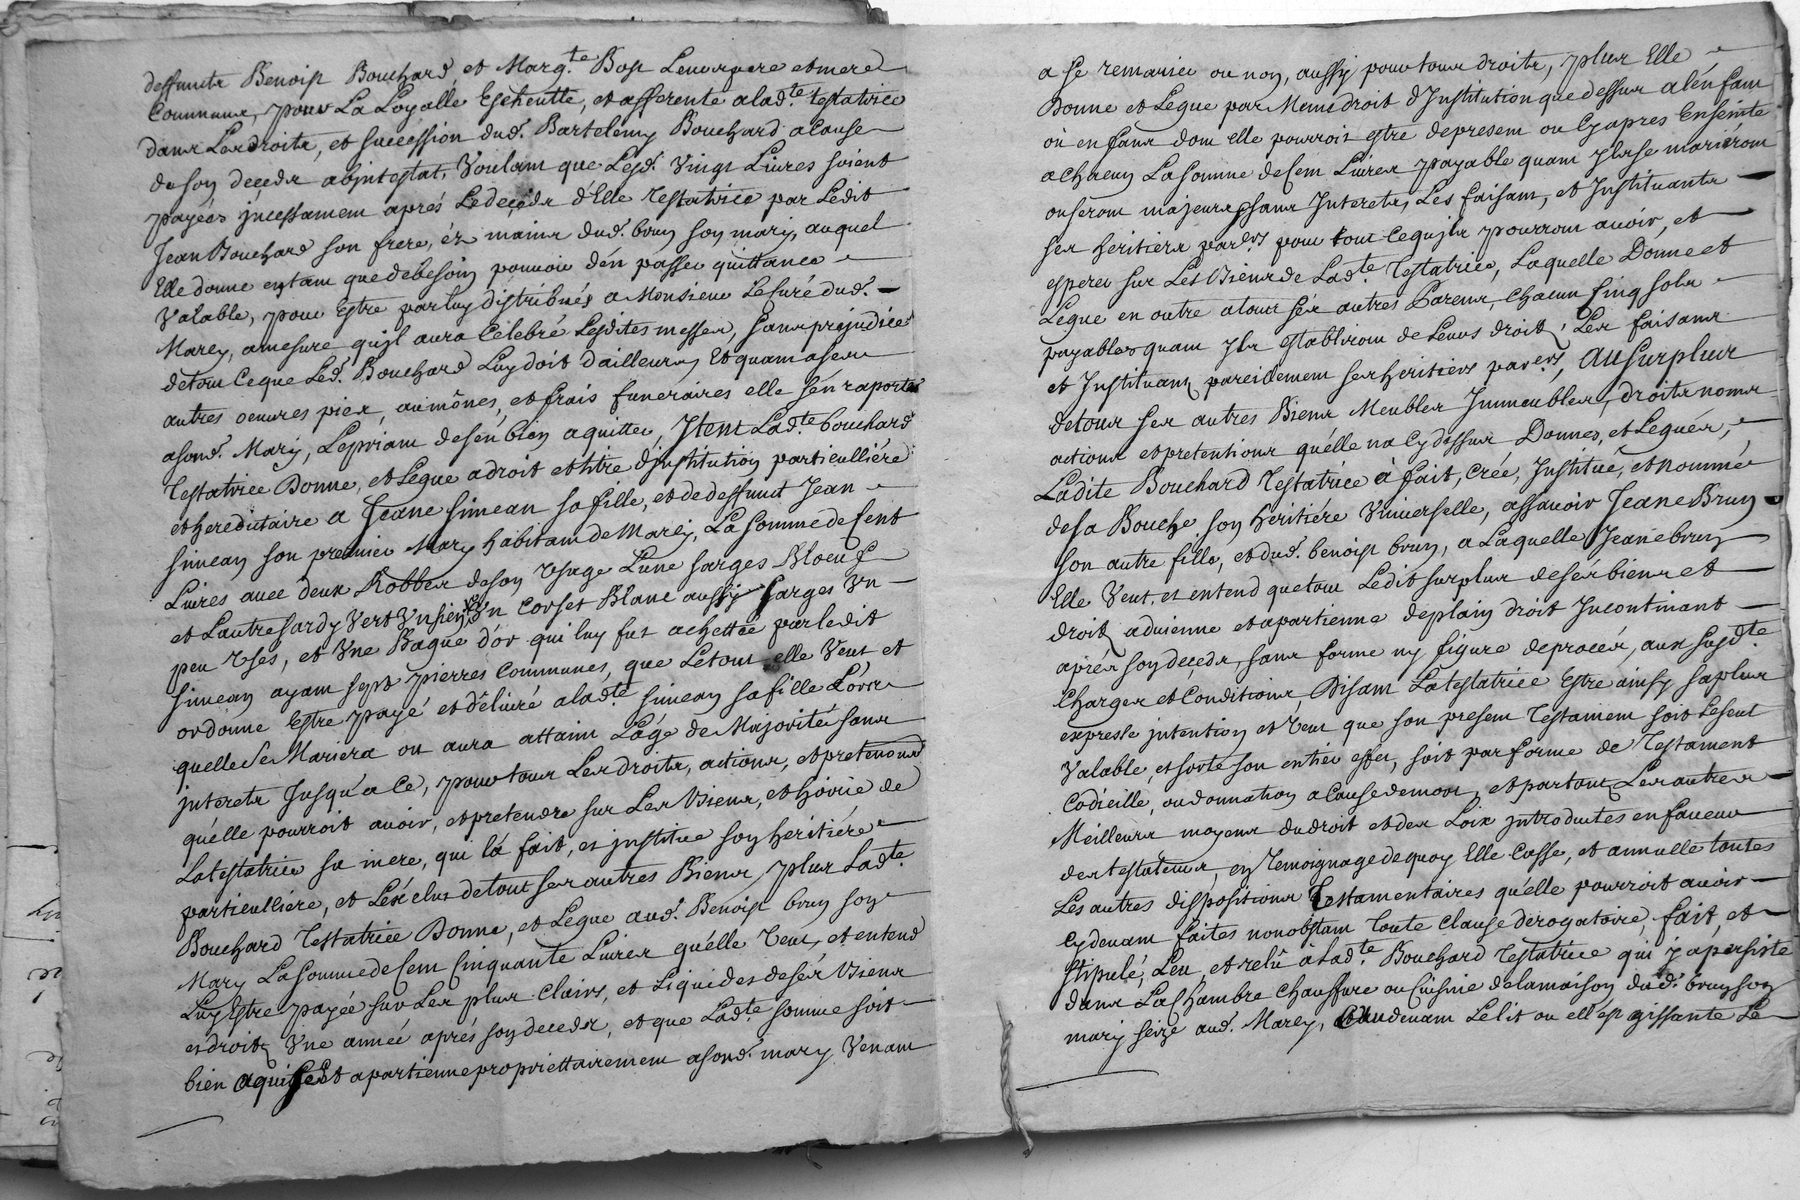 deffunts Benoist Bouchard, et Marg.te Bost Leurs pere et mere
Communs, pour La Loyalle Escheutte, et afferente a lad.te testatrice
dans Les droits, et succession dud. Bartelemy Bouchard a Cause
de son deçeds abintestat, Voulant que Lesd. Vingt Livres soient
payées incessament aprés Le deçeds d'Elle Testatrice par Ledit
Jean Bouchard son frere, éz mains dud. brun son mary, auquel
Elle donne entant que de besoin pouvoir d'en passer quittance
Valable, pour Estre par luy distribués a Monsieur Le Curé dud.
Marey, a mesure qu'il aura Célebré Lesdites messes, sans prejudice
de tout Ce que Led. Bouchard Luy doit d'ailleurs, Et quant a ses
autres oeuvres pies, aumônes, et frais funeraires elle s'en raporte
a sond. Mary, Le priant de s'én bien aquitter, Item Lad.te bouchard
Testatrice Donne, et Légue a droit et titre d'institution particulliére
et hereditaire a Jeane Simean sa fille, et de deffunct Jean
Simean son premier Mary habitant de Marey, La somme de Cent
Livres avec deux Robbes de son Usage L'une sarges Bloeuf
et L'autre sardy Vert Un Corset Blanc aussy sarges Un
peu Usés, et Une Bague d'or qui luy fut achettée par ledit
Simean ayant sept pierres Communes, que Le tout elle Veut et
ordonne Estre payé et délivré a lad.te Simean sa fille Lors
quelle Se Mariera ou aura attaint L'âge de Majorité sans
interets Jusqu'a Ce, pour tous Les droits, actions, et pretentions
qu'elle pourroit avoir, et pretendre sur Les Biens, et hoirie de
La testatrice sa mere, qui l'a fait, et institue son héritiére
particulliére, et L'éxclus de tout ses autres Biens, plus Lad.te
Bouchard Testatrice Donne, et Legue aud. Benoist brun son
Mary La somme de Cent Cinquante Livres qu'elle Veut, et entend
Luy Estre payée sur Les plus Clairs, et Liquides de sés Biens
et droits Une année aprés son deceds, et que Lad.te somme soit
bien aquise et apartienne propriettairement a sond. mary Venant
a se remarier ou non, aussy pour tous droits, plus Elle
Donne et Legue par Meme droit d'Institution que dessus a lénfant
ou enfans dont elle pourroit estre de present ou Cy apres Enseinte
a Chacun La somme de Cent Livres payable quant ils se marieront
ou seront majeurs sans Interets, Les faisant, et Instituants
ses heritiers par.ers pour tout Ce qu'ils pourront avoir, et
esperer sur Les Biens de Lad.te Testatrice, Laquelle Donne et
Legue en outre a tous ses autres Parens, Chacun Cinq sols
payables quant ils establiront de Leurs droits, Les faisant
et Instituant pareillement ses heritiers par.ers, Au surplus
de tous ses autres Biens Meubles Immeubles, droits noms
actions et pretentions qu'elle n'a Cy dessus Donnés, et Legués,
Ladite Bouchard Testatrice a fait, Crée, Institué, et nommée
de sa Bouche son héritiére Universelle, assavoir Jeane Brun
son autre fille, et dud. benoist brun, a Laquelle Jeane brun
Elle Veut, et entend que tout Ledit surplus de sés biens et
droits advienne et apartienne de plain droit Incontinant
apres son deçeds, sans forme ny figure de procés, aux susd.tes
Charges et Conditions, Disant La testatrice Estre ainsy sa plus
expresse intention et Veut que son present Testament soit Le seul
Valable, et sorte son entier effet, soit par forme de Testament
Codicille, ou donnation a Cause de mort, et par tout Les autres
Meilleurs moyens du droit et des Loix introduites en faveur
des testateurs, en Temoignage de quoy Elle Casse, et annulle toutes
Les autres dispositions Testamentaires qu'elle pourroit avoir
Cy devant faites nonobstant toute Clause derogatoire, fait, et
Stipulé, Leu, et relû a Lad.te Bouchard Testatrice qui y a persisté
dans La Chambre Chauffure ou Cuisine de la maison dud. brun son
mary seize aud. Marey, Audevant Le lit ou ell'est gissante Le